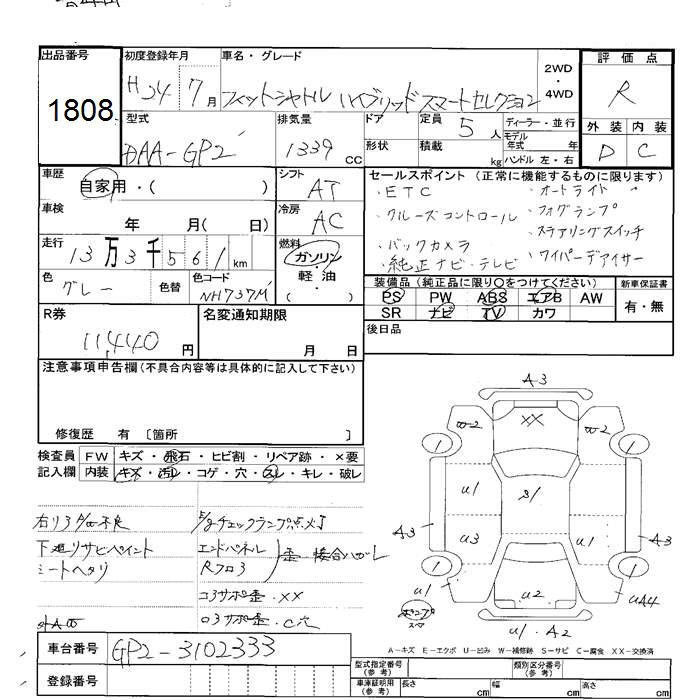 出品番号 初度登録年月 車名・グレード 2WD・4WD 評価点
1808 H24 7月 フィットシャトル ハイブリッド スマートセレクション R
型式 排気量 ドア 定員 5人 ディーラー・並行 外装 内装
DAA-GP2 1339cc 形状 積載 kg モデル年式 年 D C
ハンドル 左・右
車歴 シフト セールスポイント (正常に機能するものに限ります)
自家用・( ) AT ・ETC ・オートライト
車検 冷房 ・クルーズコントロール ・フォグランプ
年 月( 日) AC ・ステアリングスイッチ
走行 燃料 ・バックカメラ ・ワイパーデアイサー
13万3千561km ガソリン・軽油・ ・純正ナビ・テレビ
色 色替 色コード 装備品 (純正品に限り○をつけてください) 新車保証書
グレー NH737M PS PW ABS エアB AW 有・無
R券 名変通知期限 SR ナビ TV カワ
11,440円 月 日 後日品
注意事項申告欄(不具合内容等は具体的に記入して下さい)
修復歴 有 〔箇所 〕
検査員 FW キズ・飛石・ヒビ割・リペア跡・×要
記入欄 内装 キズ・汚れ・コゲ・穴・スレ・キレ・破レ
E/gチェックランプ点灯
下廻リサビペイント エンドパネル
シートヘタリ Rフロア 歪・接合ハガレ
コアサポ歪・XX
外A 
A3
XX
W2 W2
1 1
U1 S1
A3 U3 A3
1 1
U1 U2 UA4
U1・A2
A-キズ E-エクボ U-凹み W-補修跡 S-サビ C-腐食 XX-交換済
車台番号 GP2-3102333
型式指定番号(参考) 類別区分番号(参考)
登録番号 車庫証明用(参考) 長さ cm 幅 cm 高さ cm